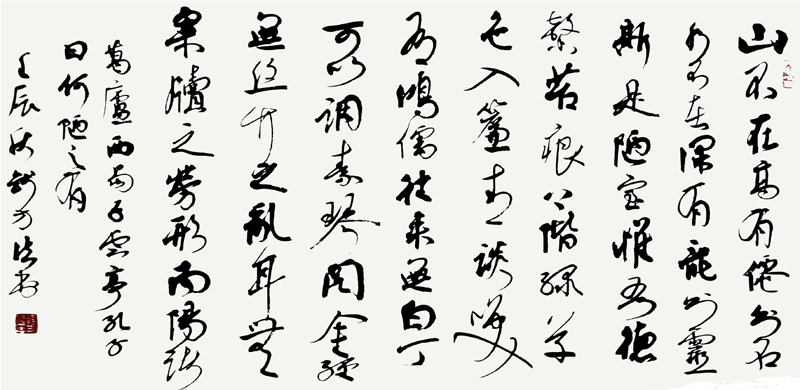 山不在高有僊则名
水不在深有龍则靈
斯是陋室惟吾德
馨苔痕上階緑草
色入簾青談笑
有鴻儒往来無白丁
可以調素琴閲金經
無丝竹之亂耳無
案牘之勞形南陽諸
葛廬西蜀子雲亭孔子
曰何陋之有
壬辰秋方书